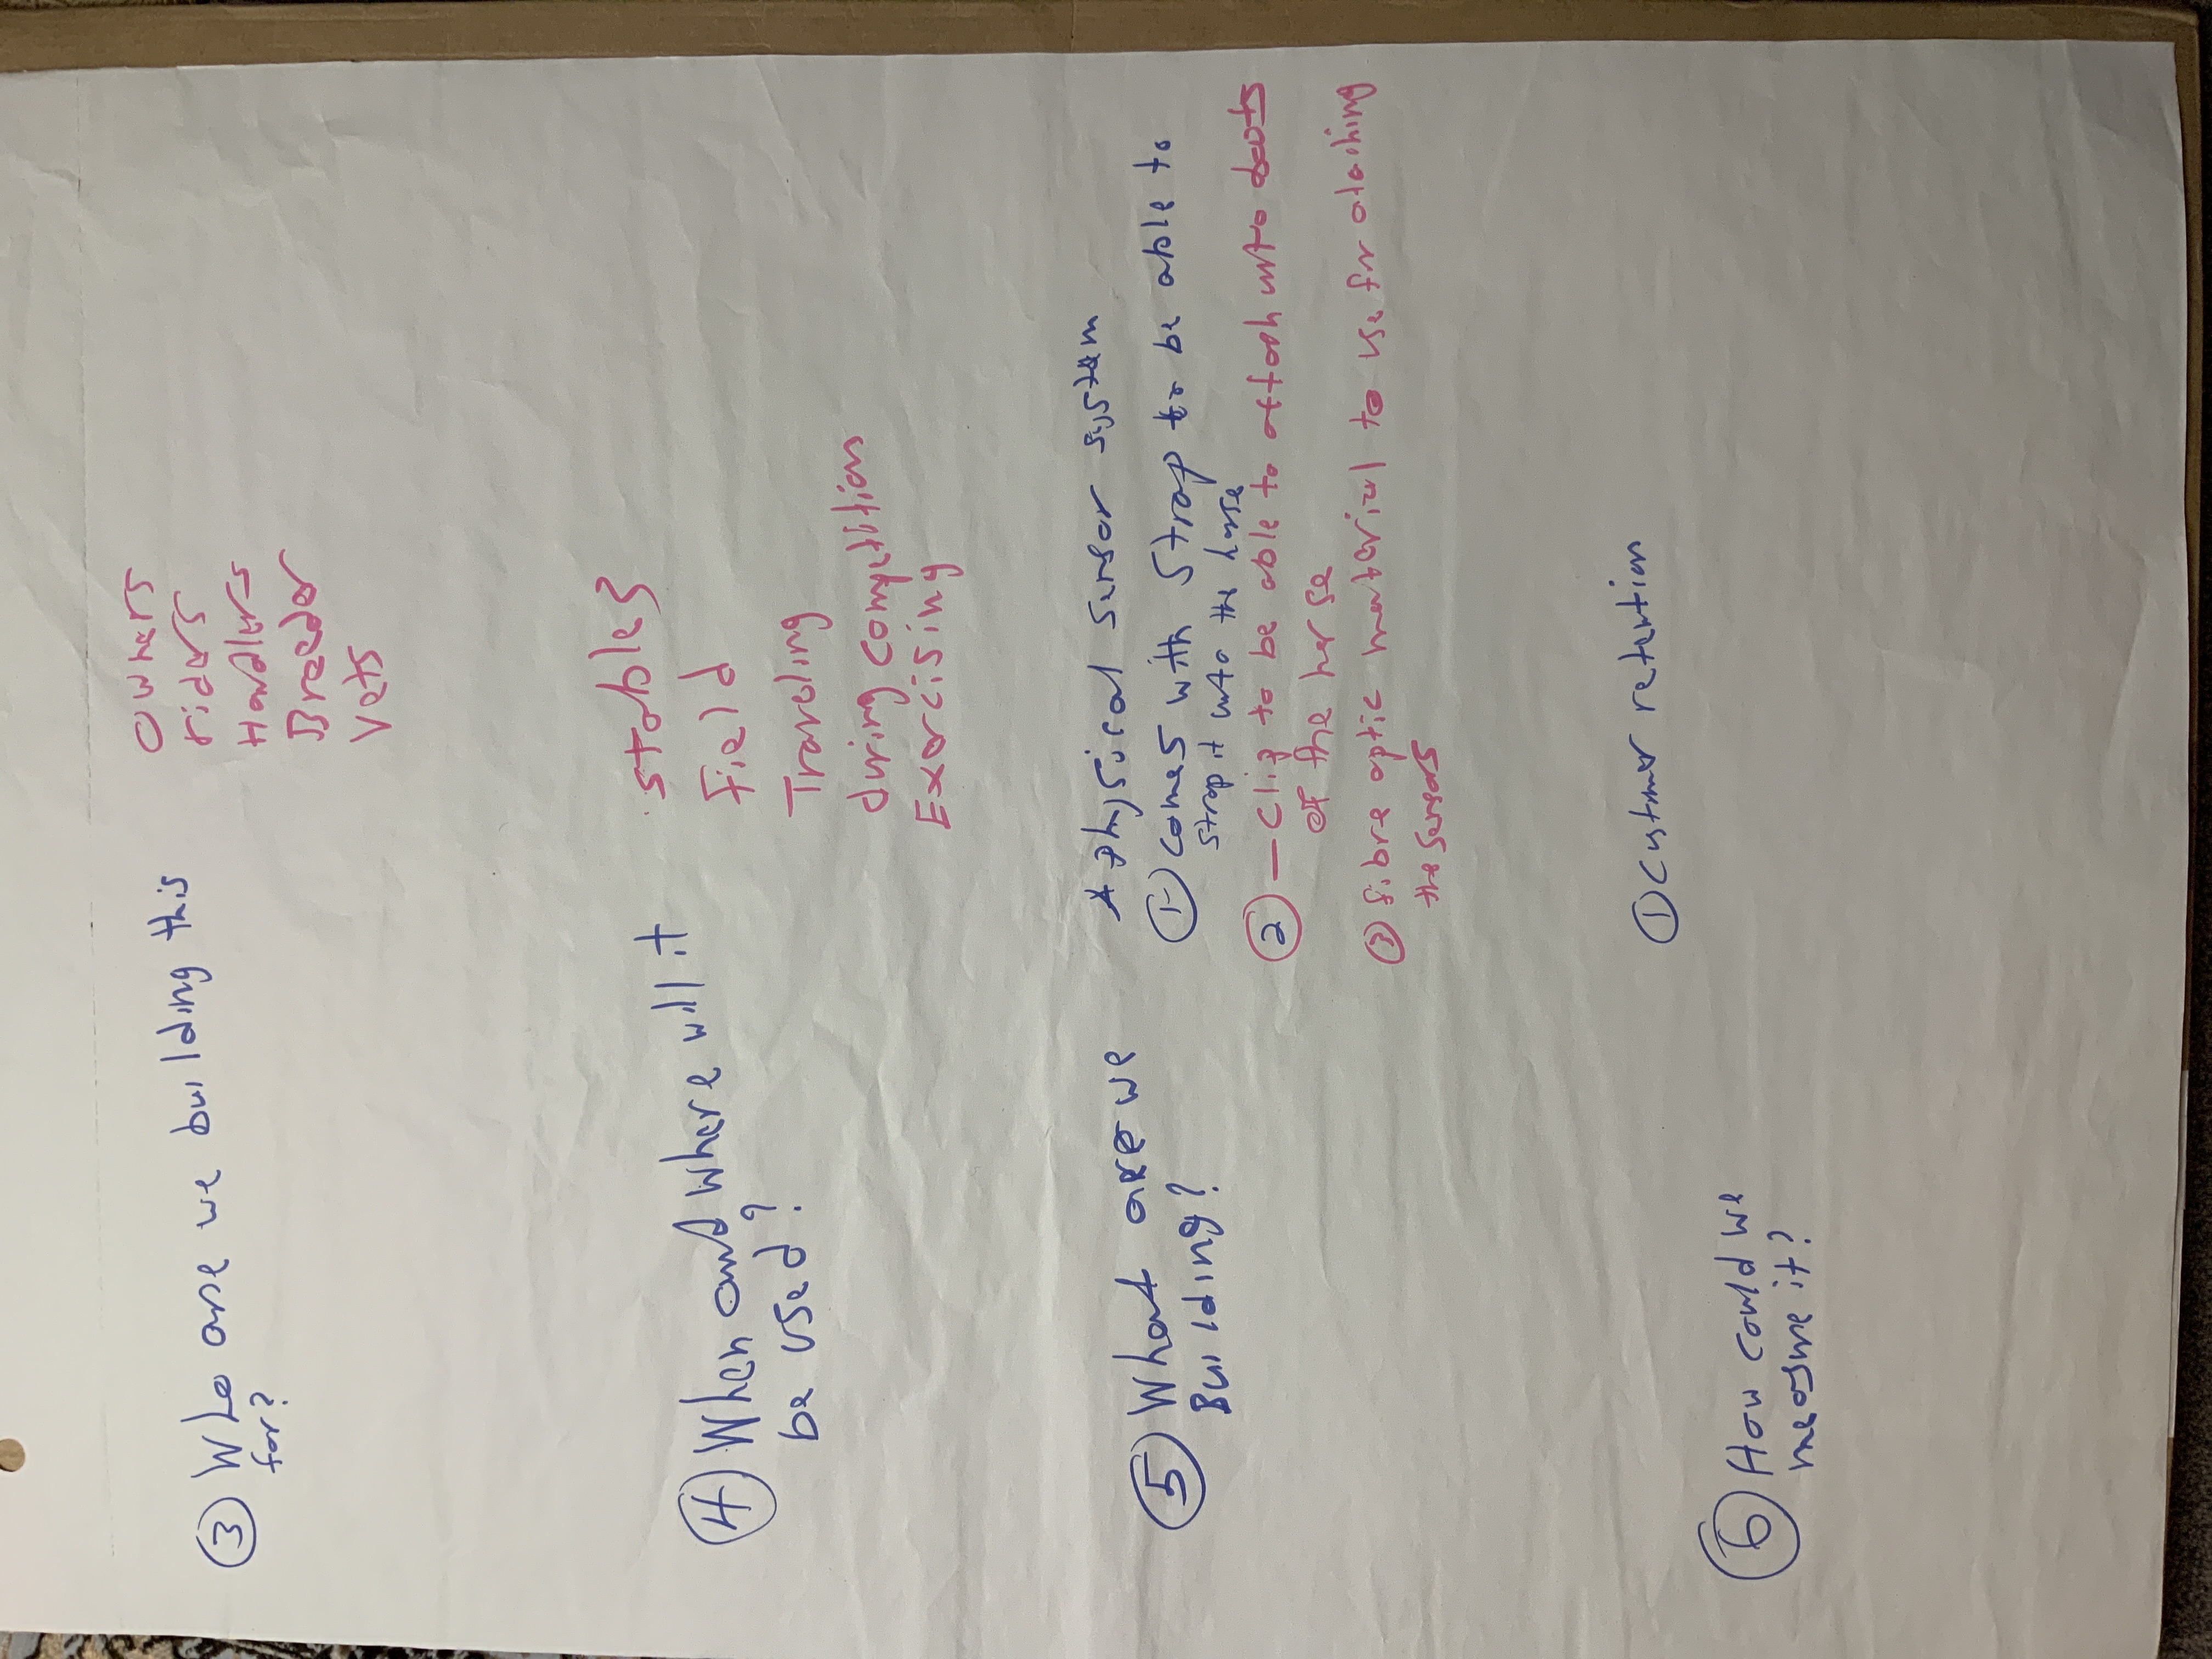 ③ Who are we building this
for?
Owners
riders
Handlers
Breeder
Vets
④ When and where will it
be used?
Stables
Field
Traveling
during Compitition
Exercising
⑤ What are we
Building?
A Physical Sensor system
① Comes with Strap to be able to
Strap it unto the horse
② — Clip to be able to attach unto
of the horse
③ fibre optic material to use for ataching
the sensors
⑥ How could we
measure it?
① Customer retention